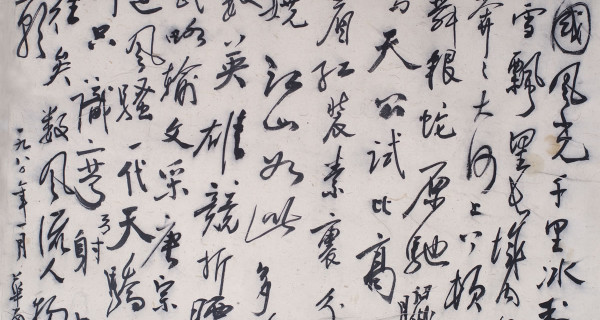 國風光千里冰
雪飄望長城内
莽莽大河上下頓
舞銀蛇原馳
天公試比高
紅裝素裹分
嬈江山如此多
數英雄競折腰
武略輸文采唐宗
風騷一代天驕
只識彎弓射
往矣數風流人物
一九八〇年一月